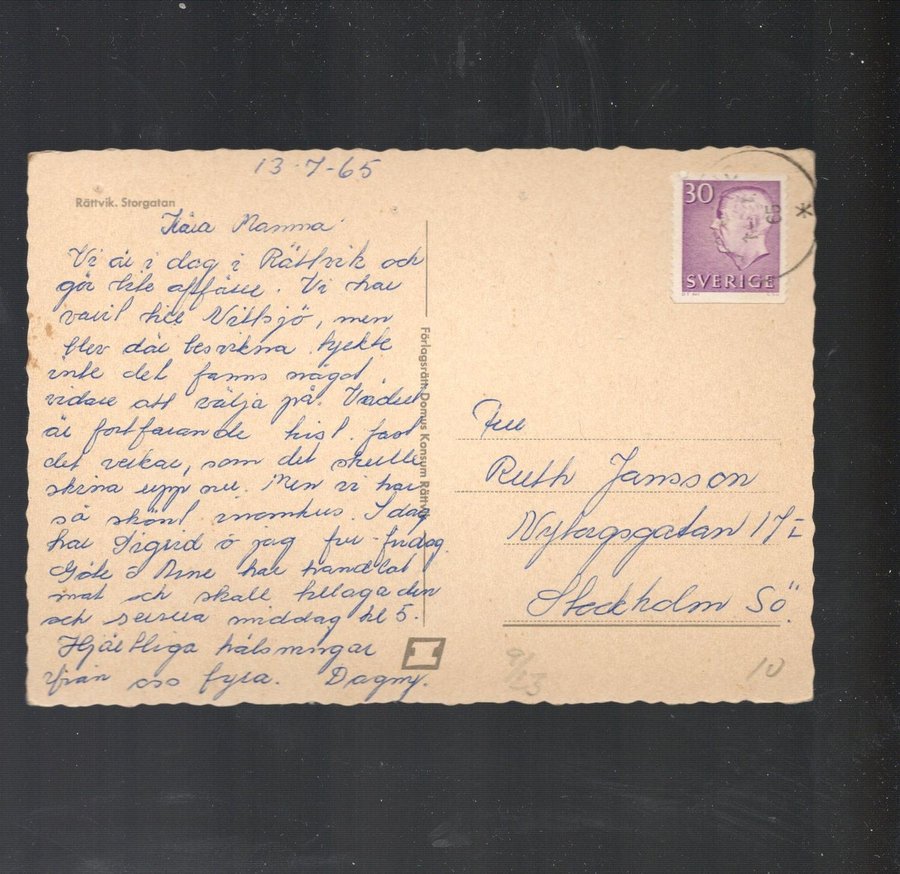 13-7-65
Rättvik. Storgatan
Kära Mamma
Vi är i dag i Rättvik och
gör lite affärer. Vi har
varit till Vittsjö, men
blev där besvikna tyckte
inte det fanns något
vidare att välja på. Vädret
är fortfarande kisl. fast
det verkar, som det skulle
skina upp nu. Men vi har
så skönt inomhus. I dag
har Sigrid o jag fri-fridag.
Göte I Arne har handlat
mat och skall helaga den
och servera middag kl 5.
Hjärtliga hälsningar
från oss fyra. Dagny.
Förlagsrätt: Domus Konsum Rättvik
30
SVERIGE
65
Fru
Ruth Jansson
Nytorgsgatan 17 I
Stockholm Sö.
9/23
10